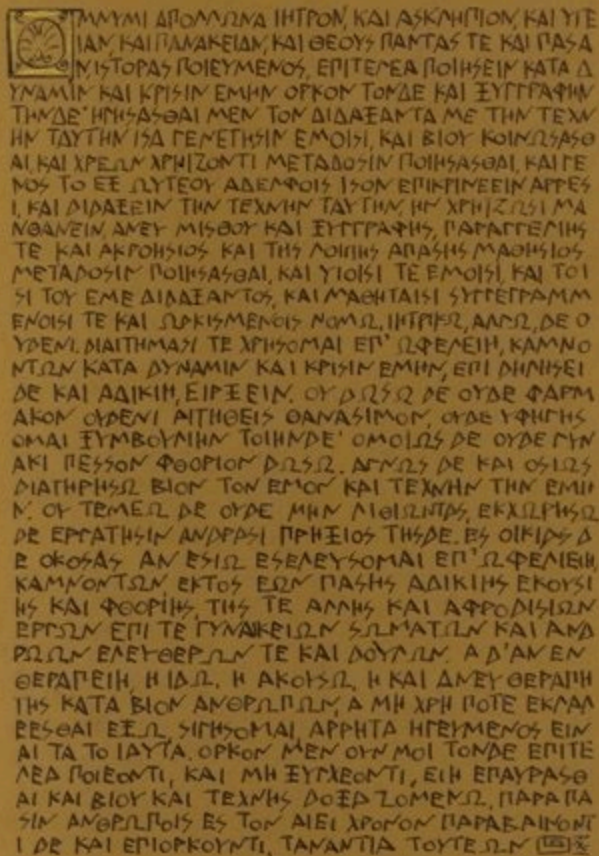 ΟΜΝΥΜΙ ΑΠΟΛΛΩΝΑ ΙΗΤΡΟΝ, ΚΑΙ ΑΣΚΛΗΠΙΟΝ, ΚΑΙ ΥΓΕ
ΙΑΝ, ΚΑΙ ΠΑΝΑΚΕΙΑΝ, ΚΑΙ ΘΕΟΥΣ ΠΑΝΤΑΣ ΤΕ ΚΑΙ ΠΑΣΑ
Ν ΙΣΤΟΡΑΣ ΠΟΙΕΥΜΕΝΟΣ, ΕΠΙΤΕΛΕΑ ΠΟΙΗΣΕΙΝ ΚΑΤΑ Δ
ΥΝΑΜΙΝ ΚΑΙ ΚΡΙΣΙΝ ΕΜΗΝ ΟΡΚΟΝ ΤΟΝΔΕ ΚΑΙ ΞΥΓΓΡΑΦΗΝ
ΤΗΝΔΕ' ΗΓΗΣΑΣΘΑΙ ΜΕΝ ΤΟΝ ΔΙΔΑΞΑΝΤΑ ΜΕ ΤΗΝ ΤΕΧΝ
ΗΝ ΤΑΥΤΗΝ ΙΣΑ ΓΕΝΕΤΗΣΙΝ ΕΜΟΙΣΙ, ΚΑΙ ΒΙΟΥ ΚΟΙΝΩΣΑΣΘ
ΑΙ, ΚΑΙ ΧΡΕΩΝ ΧΡΗΙΖΟΝΤΙ ΜΕΤΑΔΟΣΙΝ ΠΟΙΗΣΑΣΘΑΙ, ΚΑΙ ΓΕ
ΝΟΣ ΤΟ ΕΞ ΩΥΤΕΟΥ ΑΔΕΛΦΟΙΣ ΙΣΟΝ ΕΠΙΚΡΙΝΕΕΙΝ ΑΡΡΕΣ
Ι, ΚΑΙ ΔΙΔΑΞΕΙΝ ΤΗΝ ΤΕΧΝΗΝ ΤΑΥΤΗΝ, ΗΝ ΧΡΗΙΖΩΣΙ ΜΑ
ΝΘΑΝΕΙΝ, ΑΝΕΥ ΜΙΣΘΟΥ ΚΑΙ ΞΥΓΓΡΑΦΗΣ, ΠΑΡΑΓΓΕΛΙΗΣ
ΤΕ ΚΑΙ ΑΚΡΟΗΣΙΟΣ ΚΑΙ ΤΗΣ ΛΟΙΠΗΣ ΑΠΑΣΗΣ ΜΑΘΗΣΙΟΣ
ΜΕΤΑΔΟΣΙΝ ΠΟΙΗΣΑΣΘΑΙ, ΚΑΙ ΥΙΟΙΣΙ ΤΕ ΕΜΟΙΣΙ, ΚΑΙ ΤΟΙ
ΣΙ ΤΟΥ ΕΜΕ ΔΙΔΑΞΑΝΤΟΣ, ΚΑΙ ΜΑΘΗΤΑΙΣΙ ΣΥΓΓΕΓΡΑΜΜ
ΕΝΟΙΣΙ ΤΕ ΚΑΙ ΩΡΚΙΣΜΕΝΟΙΣ ΝΟΜΩ, ΙΗΤΡΙΚΩ, ΑΛΛΩ, ΔΕ Ο
ΥΔΕΝΙ. ΔΙΑΙΤΗΜΑΣΙ ΤΕ ΧΡΗΣΟΜΑΙ ΕΠ' ΩΦΕΛΕΙΗ, ΚΑΜΝΟ
ΝΤΩΝ ΚΑΤΑ ΔΥΝΑΜΙΝ ΚΑΙ ΚΡΙΣΙΝ ΕΜΗΝ, ΕΠΙ ΔΗΛΗΣΕΙ
ΔΕ ΚΑΙ ΑΔΙΚΙΗ, ΕΙΡΞΕΙΝ. ΟΥ ΔΩΣΩ ΔΕ ΟΥΔΕ ΦΑΡΜ
ΑΚΟΝ ΟΥΔΕΝΙ ΑΙΤΗΘΕΙΣ ΘΑΝΑΣΙΜΟΝ, ΟΥΔΕ ΥΦΗΓΗΣ
ΟΜΑΙ ΞΥΜΒΟΥΛΙΗΝ ΤΟΙΗΝΔΕ' ΟΜΟΙΩΣ ΔΕ ΟΥΔΕ ΓΥΝ
ΑΚΙ ΠΕΣΣΟΝ ΦΘΟΡΙΟΝ ΔΩΣΩ. ΑΓΝΩΣ ΔΕ ΚΑΙ ΟΣΙΩΣ
ΔΙΑΤΗΡΗΣΩ ΒΙΟΝ ΤΟΝ ΕΜΟΝ ΚΑΙ ΤΕΧΝΗΝ ΤΗΝ ΕΜΗ
Ν. ΟΥ ΤΕΜΕΩ ΔΕ ΟΥΔΕ ΜΗΝ ΛΙΘΙΩΝΤΑΣ, ΕΚΧΩΡΗΣΩ
ΔΕ ΕΡΓΑΤΗΣΙΝ ΑΝΔΡΑΣΙ ΠΡΗΞΙΟΣ ΤΗΣΔΕ. ΕΣ ΟΙΚΙΑΣ Δ
Ε ΟΚΟΣΑΣ ΑΝ ΕΣΙΩ ΕΣΕΛΕΥΣΟΜΑΙ ΕΠ' ΩΦΕΛΕΙΗ,
ΚΑΜΝΟΝΤΩΝ ΕΚΤΟΣ ΕΩΝ ΠΑΣΗΣ ΑΔΙΚΙΗΣ ΕΚΟΥΣΙ
ΗΣ ΚΑΙ ΦΘΟΡΙΗΣ, ΤΗΣ ΤΕ ΑΛΛΗΣ ΚΑΙ ΑΦΡΟΔΙΣΙΩΝ
ΕΡΓΩΝ ΕΠΙ ΤΕ ΓΥΝΑΙΚΕΙΩΝ ΣΩΜΑΤΩΝ ΚΑΙ ΑΝΔ
ΡΩΩΝ ΕΛΕΥΘΕΡΩΝ ΤΕ ΚΑΙ ΔΟΥΛΩΝ. Α Δ'ΑΝ ΕΝ
ΘΕΡΑΠΕΙΗ, Η ΙΔΩ, Η ΑΚΟΥΣΩ, Η ΚΑΙ ΑΝΕΥ ΘΕΡΑΠΗ
ΙΗΣ ΚΑΤΑ ΒΙΟΝ ΑΝΘΡΩΠΩΝ, Α ΜΗ ΧΡΗ ΠΟΤΕ ΕΚΛΑΛ
ΕΕΣΘΑΙ ΕΞΩ, ΣΙΓΗΣΟΜΑΙ, ΑΡΡΗΤΑ ΗΓΕΥΜΕΝΟΣ ΕΙΝ
ΑΙ ΤΑ ΤΟΙΑΥΤΑ. ΟΡΚΟΝ ΜΕΝ ΟΥΝ ΜΟΙ ΤΟΝΔΕ ΕΠΙΤΕ
ΛΕΑ ΠΟΙΕΟΝΤΙ, ΚΑΙ ΜΗ ΞΥΓΧΕΟΝΤΙ, ΕΙΗ ΕΠΑΥΡΑΣΘ
ΑΙ ΚΑΙ ΒΙΟΥ ΚΑΙ ΤΕΧΝΗΣ ΔΟΞΑΖΟΜΕΝΩ, ΠΑΡΑ ΠΑ
ΣΙΝ ΑΝΘΡΩΠΟΙΣ ΕΣ ΤΟΝ ΑΙΕΙ ΧΡΟΝΟΝ ΠΑΡΑΒΑΙΝΟΝΤ
Ι ΔΕ ΚΑΙ ΕΠΙΟΡΚΟΥΝΤΙ, ΤΑΝΑΝΤΙΑ ΤΟΥΤΕΩΝ